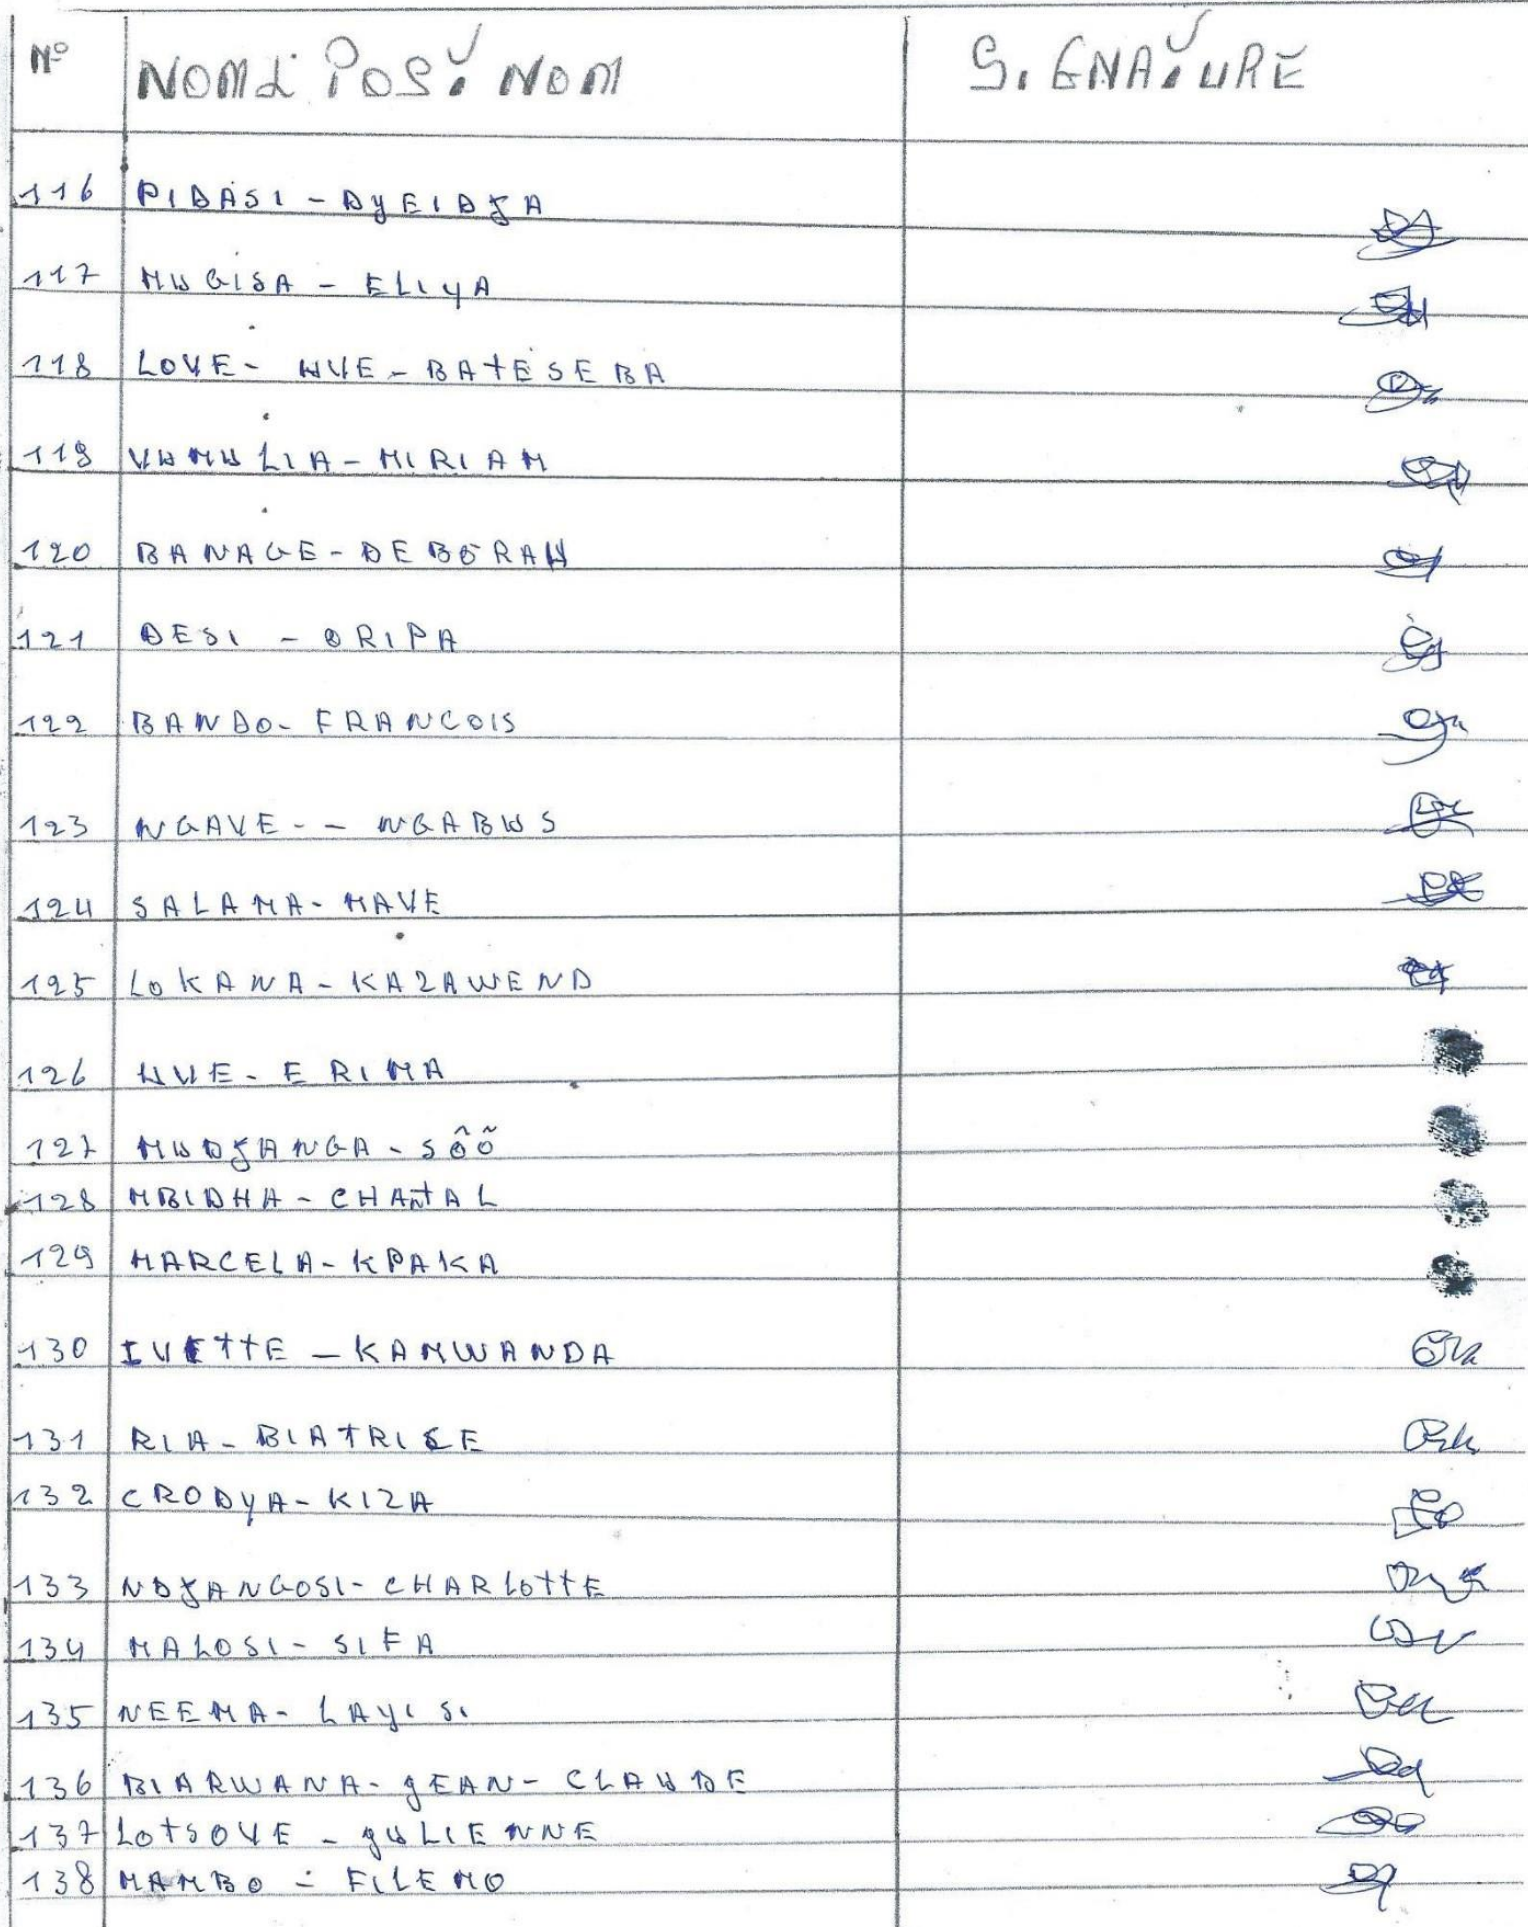 N° NOM & POST NOM SIGNATURE
116 PIDASI - DYEIDJA
117 MUGISA - ELIYA
118 LOVE - NVE - BATESEBA
119 VUMULIA - MIRIAM
120 BANAGE - DEBORAH
121 DESI - ORIPA
122 BANDO - FRANCOIS
123 NGAVE - - NGABUS
124 SALAMA - MAVE
125 LOKANA - KAZAWEND
126 NVE - ERIMA
127 MUDJANGA - SÔÕ
128 MBIDHA - CHANTAL
129 MARCELA - KPAKA
130 IVETTE - KAMWANDA
131 RIA - BIATRICE
132 CRODYA - KIZA
133 NDJANGOSI - CHARLOTTE
134 MALOSI - SIFA
135 NEEMA - LAYISI
136 BIARWANA - JEAN - CLAUDE
137 LOTSOVE - JULIENNE
138 MAMBO - FILEMO